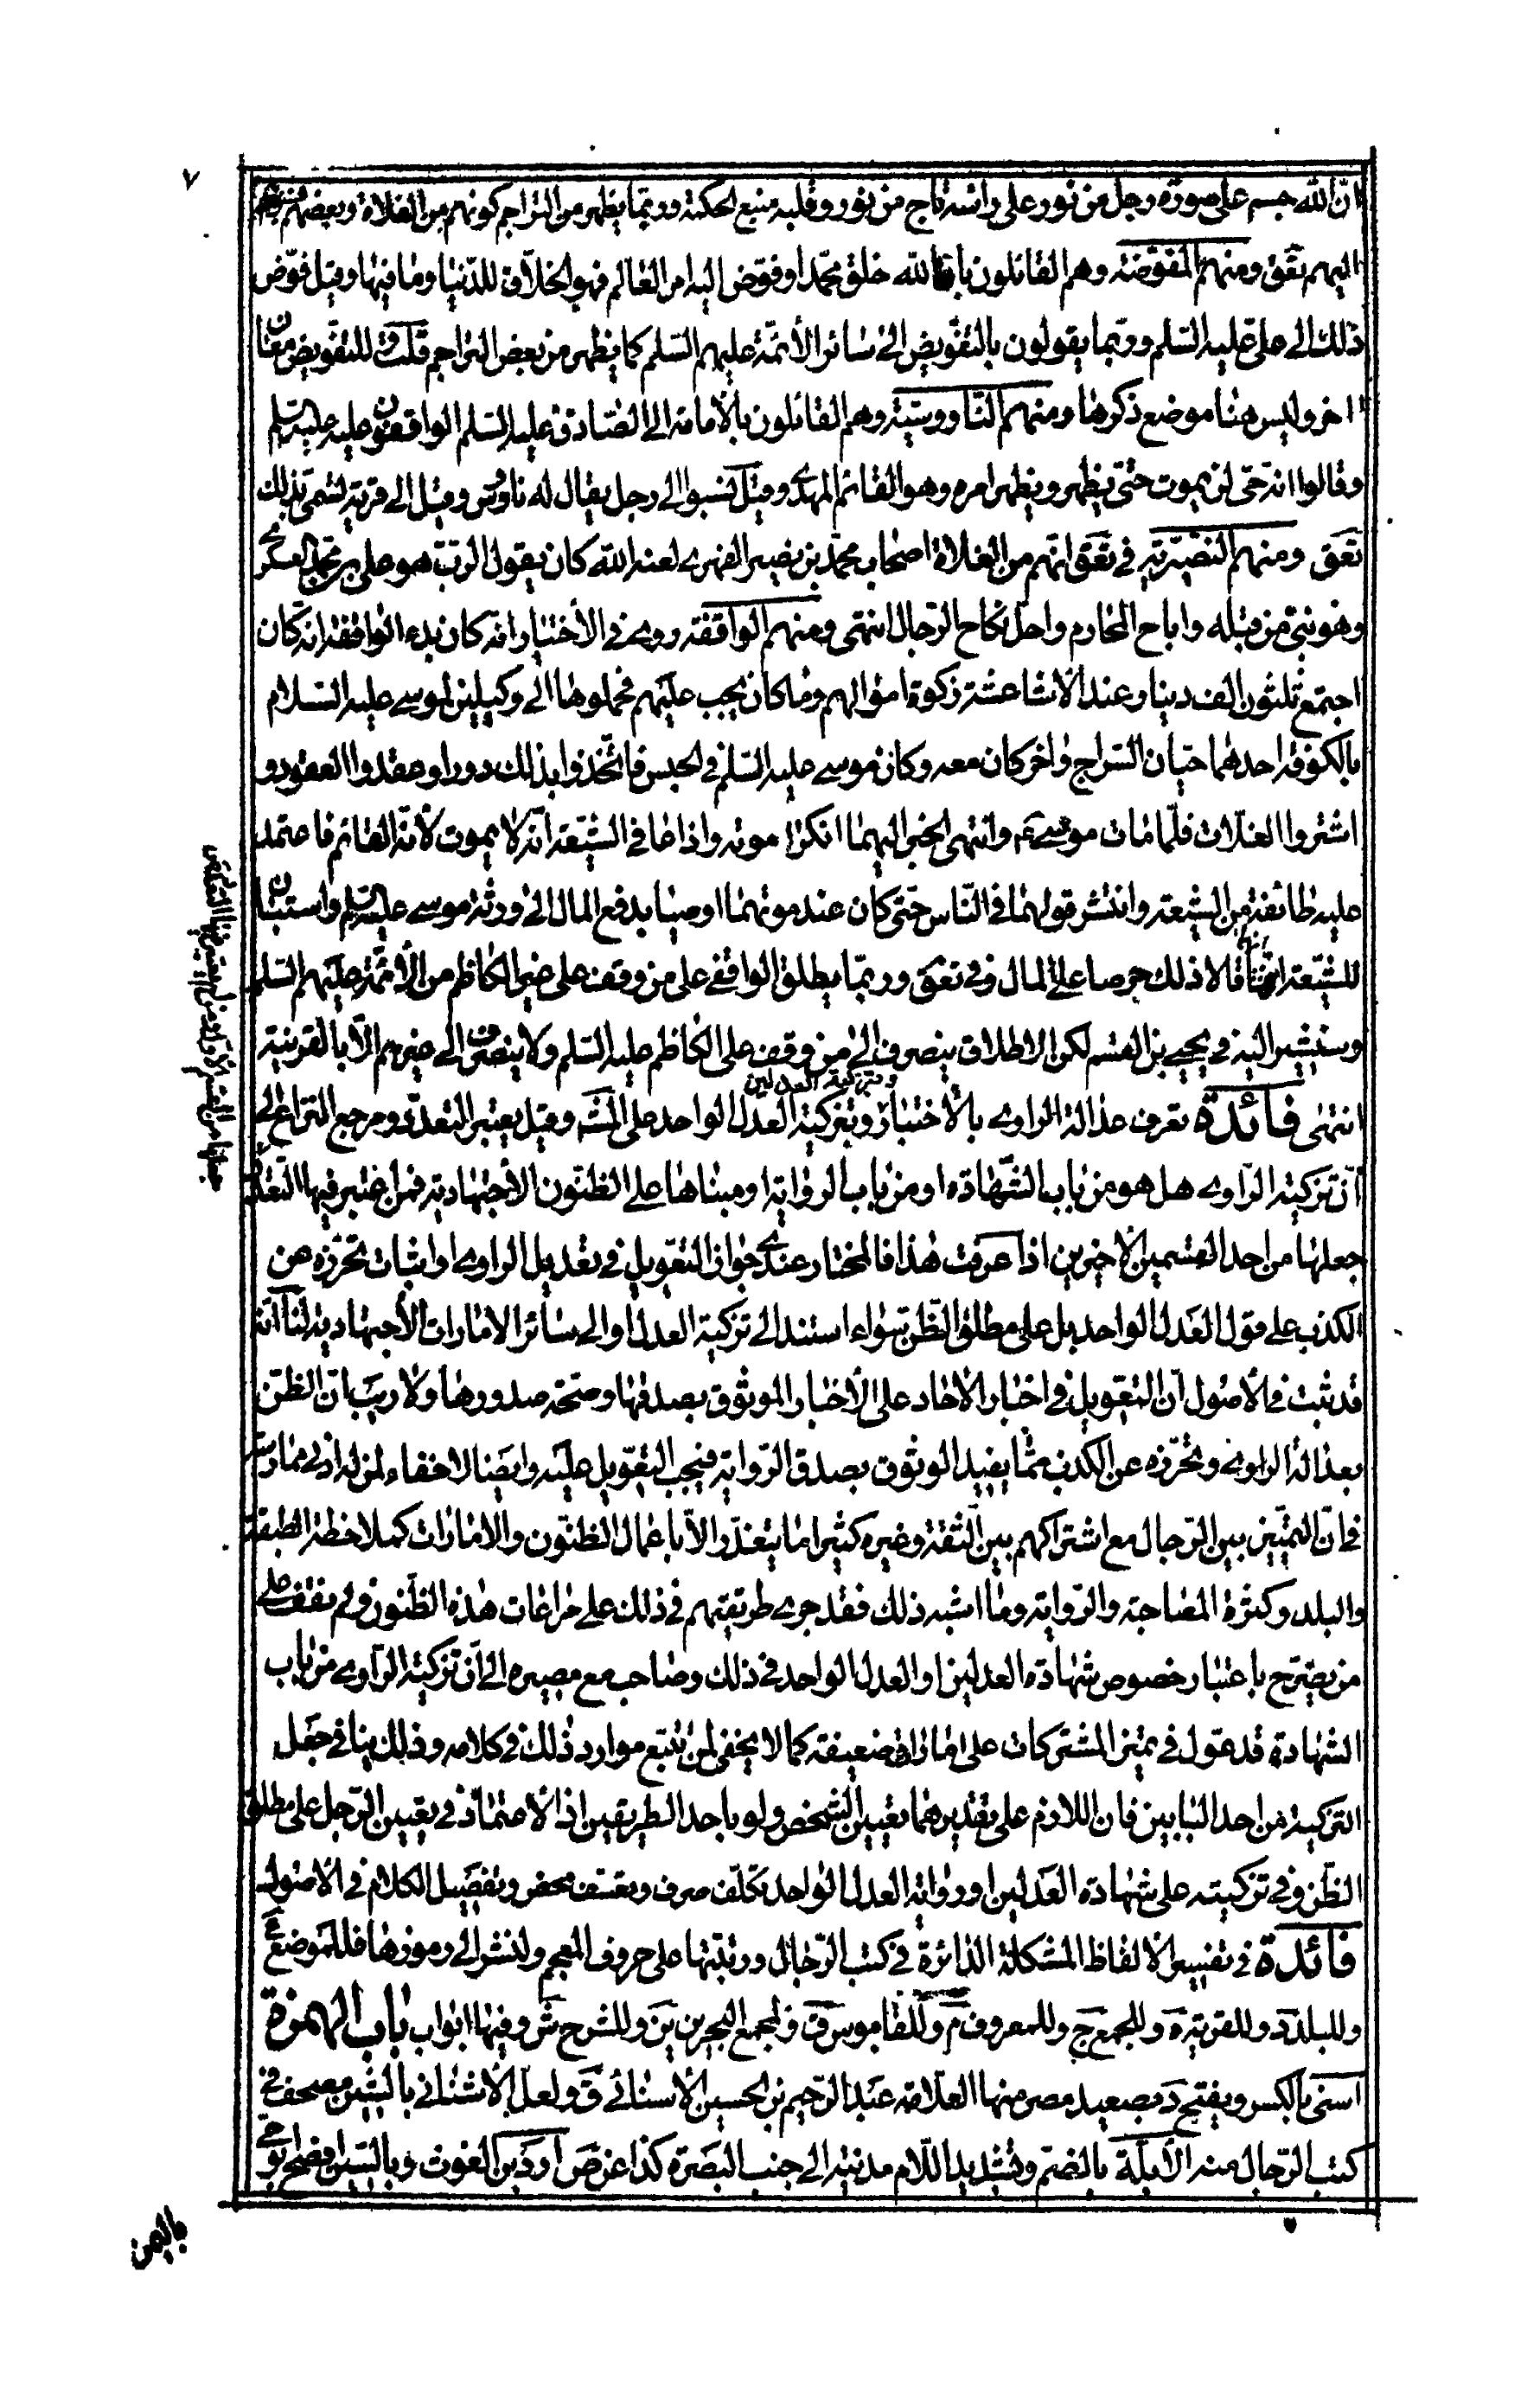 ٧
انّ الله جسم على صورة رجل من نور على رأسه تاج من نور وقلبه منبع الحكمة وربّما يظهر من التراجم كونهم من الغلاة وبعضهم
اليهم تعق ومنهم المفوّضة وهم القائلون بانّ الله خلق محمّدا وفوّض اليه امر العالم فهو الخلّاق للدّنيا وما فيها وقيل فوّض
ذلك الى علىّ عليه السّلم وربما يقولون بالتّفويض الى سائر الأئمّة عليهم السّلم كما يظهر من بعض التراجم قلت للتفويض معان
اخر وليس هنا موضع ذكرها ومنهم النّاووسيّة وهم القائلون بالأمامة الى الصّادق عليه السّلم الواقفون عليه عليه السّلم
وقالوا انّه حىّ لن يموت حتّى يظهر ويظهر امره وهو القائم المهدى وقيل نسبوا الى رجل يقال له ناوس وقيل الى قرية تسمى بذلك
تعق ومنهم النّصيريّة فى تعق انّهم من الغلاة اصحاب محمّد بن نصير الفهرى لعنه الله كان يقول الربّ هو على بن محمّد العسكرى
وهو نبىّ من قبله واباح المحارم واحلّ نكاح الرّجال انتهى ومنهم الواقفة روى فى الأختيار انّه كان بدء الواقفة انّه كان
اجتمع ثلثون الف دينار عند الاشاعثة زكوة اموالهم وما كان يجب عليهم فحملوها الى وكيلين لموسى عليه السّلام
بالكوفة احدهما حيّان السّراج واخر كان معه وكان موسى عليه السّلم فى الحبس فاتّخذوا بذلك دورا وعقدوا العقود و
اشتروا الغلّات فلمّا مات موسى ع وانتهى الخبر اليهما انكرا موته واذاعا فى الشّيعة انّه لا يموت لأنّه القائم فاعتمد
عليه طائفة من الشّيعة وانتشر قولهما فى النّاس حتّى كان عند موتهما اوصيا بدفع المال الى ورثة موسى عليه السّلم واستبان
للشّيعة انّهما قالا ذلك حرصا على المال وفى تعق وربّما يطلق الواقفى على من وقف على غير الكاظم من الأئمّة عليهم السّلم
وسنشير اليه فى يحيى بن القسم لكن الاطلاق ينصرف الى من وقف على الكاظم عليه السّلم ولا ينصرف الى غيرهم الّا بالقرينة
انتهى فائدة تعرف عدالة الراوى بالأختبار وبتزكية العدلين وتزكية العدل الواحد على المشه وقيل يعتبر التعدّد ومرجع النزاع الى
انّ تزكية الرّاوى هل هو من باب الشّهادة او من باب الرّواية او مبناها على الظّنون الأجتهادية فمن اعتبر فيها التّعدّد
جعلها من احد القسمين الاخيرين اذا عرفت هذا فالمختار عندى جواز التّعويل فى تعديل الراوى او اثبات تحرّزه عن
الكذب على قول العدل الواحد بل على مطلق الظّن سواء استند الى تزكية العدل او الى سائر الامارات الأجتهادية لنا انّه
قد ثبت فى الأصول انّ التّعويل فى اخبار الاحاد على الأخبار الموثوق بصدقها وصحّة صدورها ولا ريب انّ الظّن
بعدالة الراوى وتحرّزه عن الكذب ممّا يفيد الوثوق بصدق الرّواية فيجب التّعويل عليه وايضا لاخفاء لمن له ادنى ممارسة
فى انّ التّميّيز بين الرّجال مع اشتراكهم بين الثّقة وغيره كثيرا ما يتعذّر الّا باعمال الظّنون والامارات كملاحظة الطبقة
والبلد وكثرة المصاحبة والرّواية وما اشبه ذلك فقد جرى طريقتهم فى ذلك على مراعات هذه الظّنون ولم نقف على
من يصرّح باعتبار خصوص شهادة العدلين او العدل الواحد فى ذلك وصاحب مع مصيره الى انّ تزكية الرّاوى من باب
الشهادة قد عوّل فى تميّز المشتركات على امارات ضعيفة كما لا يخفى لمن تتبّع موارد ذلك فى كلامه وذلك ينافى جعل
التزكية من احد البابين فان اللازم على تقديرهما تعيين الشّخص ولو باحد الطريقين اذ الأعتماد فى تعيين الرّجل على مطلق
الظّن وفى تزكيته على شهادة العدلين او رواية العدل الواحد تكلّف صرف وتعسّف محض وتفصيل الكلام فى الأصول
فائدة فى تفسير الألفاظ المشكلة الدّائرة فى كتب الرّجال ورتّبتها على حروف المعجم ولنشر الى رموزها فللموضع ع
وللبلد د وللقرية ة وللجمع ج وللمعروف م وللقاموس ق ولمجمع البحرين ين وللشرح ش وفيها ابواب باب الهمزة
اسنى بالكسر ويفتح د بصعيد مصر منها العلّامة عبد الرّحيم بن الحسين الأسنائى ق ولعلّ الأشنانى بالشّين مصحف فى
كتب الرّجال منه الأبلّة بالضم وتشديد اللّام مدينة الى جنب البصرة كذا عن ص اردبن الغوث وبالسّين افصح ابو حى
باليمن